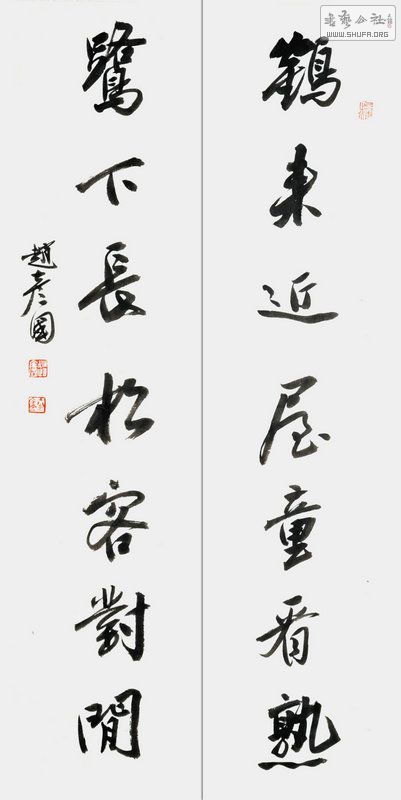 鶴來近屋童看熟
鷺下長松客對閒
趙彥國
书艺公社
WWW.SHUFA.ORG